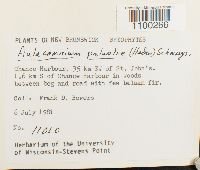 1100266
PLANTS OF NEW BRUNSWICK BRYOPHYTES
Aulacomnium palustre (Hedw.) Schwaegr.
Chance Harbour, 35 km SW of St. John's.
1.6 km S of Chance harbour in woods
between bog and road with few balsam fir.
Col: Frank D. Bowers
6 July 1981
No. 11010
Herbarium of the University
of Wisconsin-Stevens Point